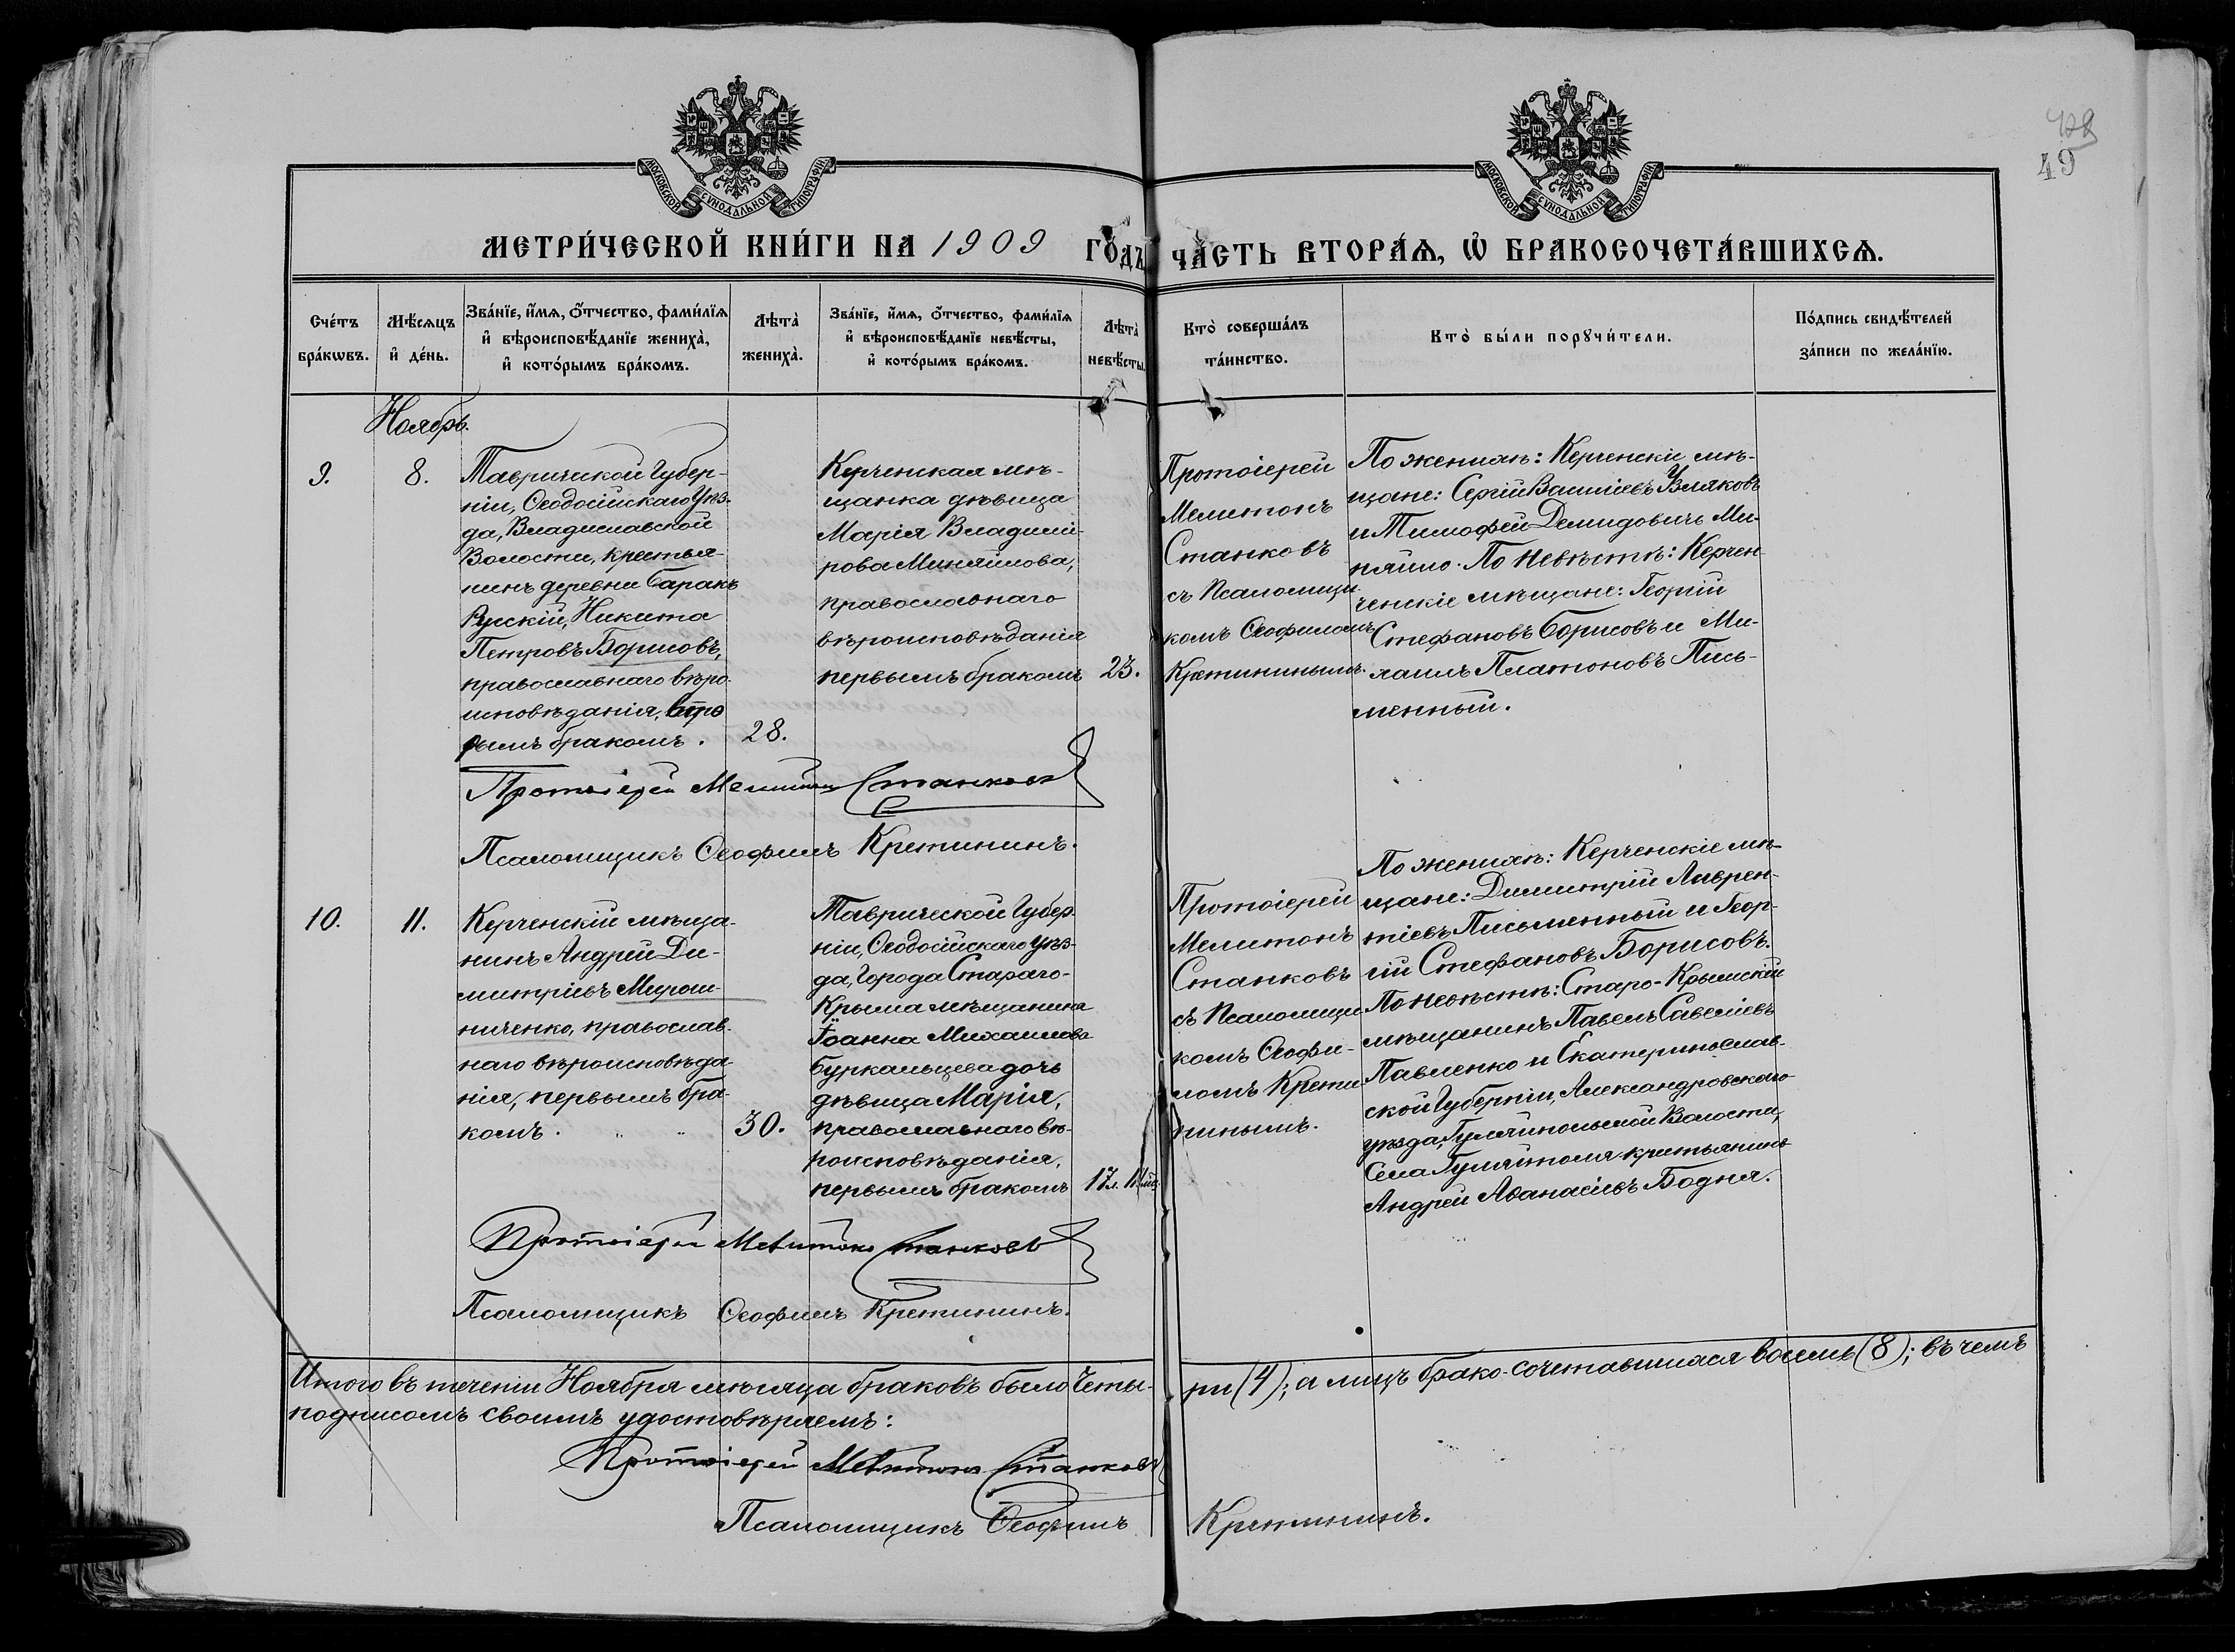 428
49
МОСКОВСКОЙ СѴНОДАЛЬНОЙ ТИПОГРАФІИ
МОСКОВСКОЙ СѴНОДАЛЬНОЙ ТИПОГРАФІИ
МЕТРИ́ЧЕСКОЙ КНИ́ГИ НА 1909 ГО́ДЪ ЧА́СТЬ ВТОРА́Ѧ, Ѽ БРАКОСОЧЕТА́ВШИХСѦ.
Сче́тъ
бра́кѡвъ.
Мѣ́сѧцъ
и҆ де́нь.
Зва́нїе, и҆́мѧ, ѻ҆́тчество, фами́лїѧ
и҆ вѣроисповѣ́данїе жениха̀,
и҆ кото́рымъ бра́комъ.
Лѣта̀
жениха̀.
Зва́нїе, и҆́мѧ, ѻ҆́тчество, фами́лїѧ
и҆ вѣроисповѣ́данїе невѣ́сты,
и҆ кото́рымъ бра́комъ.
Лѣта̀
невѣ́сты.
Кто̀ соверша́лъ
та́инство.
Кто̀ бы́ли порꙋчи́тели.
По́дпись свидѣ́телей
за́писи по жела́нїю.
Ноябрь.
9.
8.
Таврической Губер-
ніи, Ѳеодосійскаго Уѣз-
да, Владиславской
Волости, крестья-
нинъ деревни Баракъ
Русскій, Никита
Петровъ Борисовъ,
православнаго вѣро-
исповѣданія, вто
рымъ бракомъ.
28.
Керченская мѣ-
щанка дѣвица
Марія Владимі-
рова Миняйлова,
православнаго
вѣроисповѣданія
первымъ бракомъ
23.
Протоіерей
Мелитонъ
Станковъ
съ Псаломщи-
комъ Ѳеофиломъ
Кретининымъ.
По женихѣ: Керченскіе мѣ-
щане: Сергій Василіевъ Уляковъ
и Тимофей Демидовичъ Ми-
няйло. По Невѣстѣ: Керчен-
ченскіе мѣщане: Георгій
Стефановъ Борисовъ и Ми-
хаилъ Платоновъ Пись-
менный.
Протоіерей Мелитонъ Станковъ
Псаломщикъ Ѳеофилъ Кретининъ.
10.
11.
Керченскій мѣща-
нинъ Андрей Ди-
митріевъ Мирош-
ниченко, православ-
наго вѣроисповѣда-
нія, первымъ бра-
комъ. " "
30.
Таврической Губер-
ніи, Ѳеодосійскаго Уѣз-
да, Города Стараго-
Крыма мѣщанина
Іоанна Михаилова
Буркальцева дочь
дѣвица Марія,
православнаго вѣ-
роисповѣданія,
первымъ бракомъ
17 л. 11 мѣс.
Протоіерей
Мелитонъ
Станковъ
съ Псаломщи
комъ Ѳеофи-
ломъ Крети
нинымъ.
По женихѣ: Керченскіе мѣ-
щане: Димитрій Лаврен-
тіевъ Письменный и Геор-
гій Стефановъ Борисовъ.
По невѣстѣ: Старо-Крымскій
мѣщанинъ Павелъ Савеліевъ
Павленко и Екатеринослав-
ской Губерніи, Александровскаго
уѣзда, Гуляйпольской Волости,
Села Гуляйполя крестьянинъ
Андрей Аѳанасіевъ Бодня.
Протоіерей Мелитонъ Станковъ
Псаломщикъ Ѳеофилъ Кретининъ.
Итого въ теченіи Ноября мѣсяца браковъ было Четы-ри (4); а лицъ брако-сочетавшихся восемь (8); въ чемъ
подписомъ своимъ удостовѣряемъ:
Протоіерей Мелитонъ Станковъ
Псаломщикъ Ѳеофилъ Кретининъ.